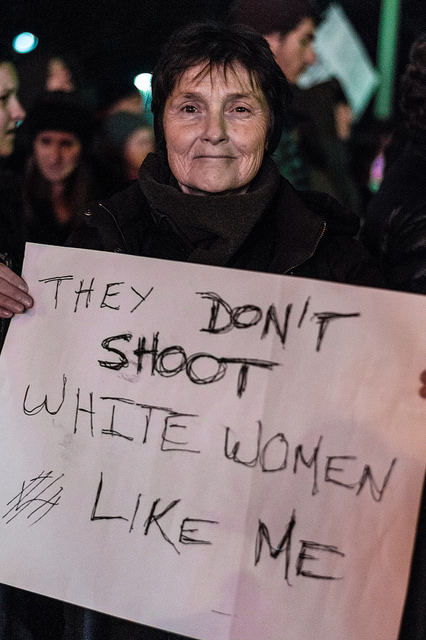 THEY DON'T
SHOOT
WHITE WOMEN
LIKE ME